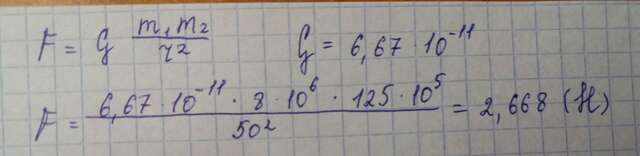 F = G m₁m₂/r² G = 6,67 · 10⁻¹¹
F = 6,67 · 10⁻¹¹ · 8 · 10⁶ · 125 · 10⁵/50² = 2,668 (Н)